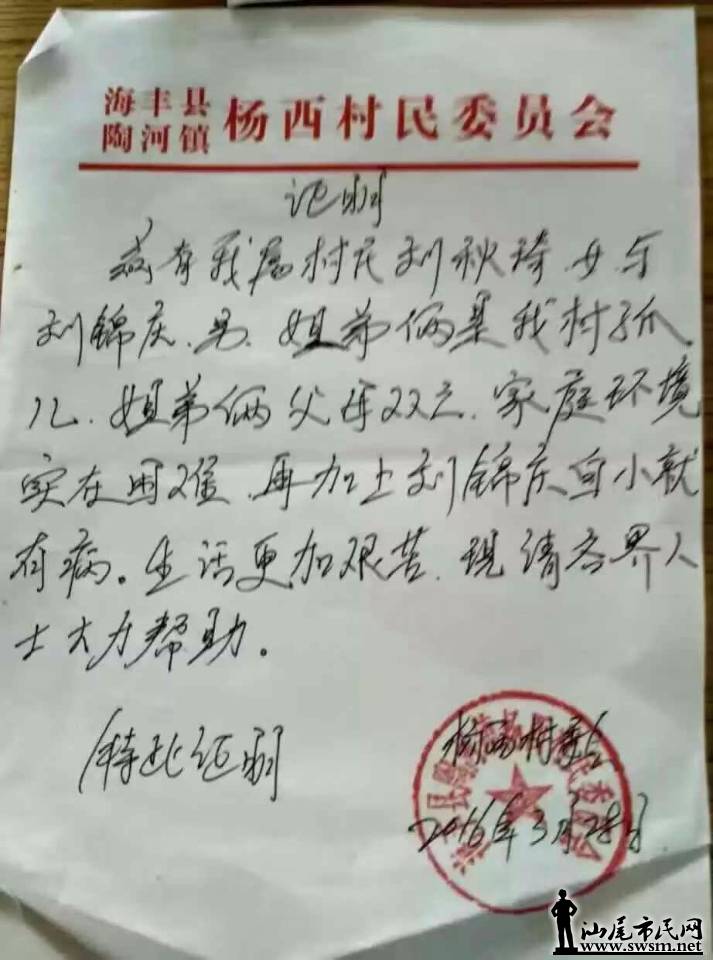 海丰县
陶河镇 杨西村民委员会
证明
兹有我属村民刘秋琦.女.与
刘锦庆.男.姐弟俩是我村孤
儿.姐弟俩父母双亡.家庭环境
实在困难.再加上刘锦庆自小就
有病。生活更加艰苦.现请各界人
士大力帮助。
特此证明
杨西村委会
2016年3月28日
汕尾市民网
www.swsm.net